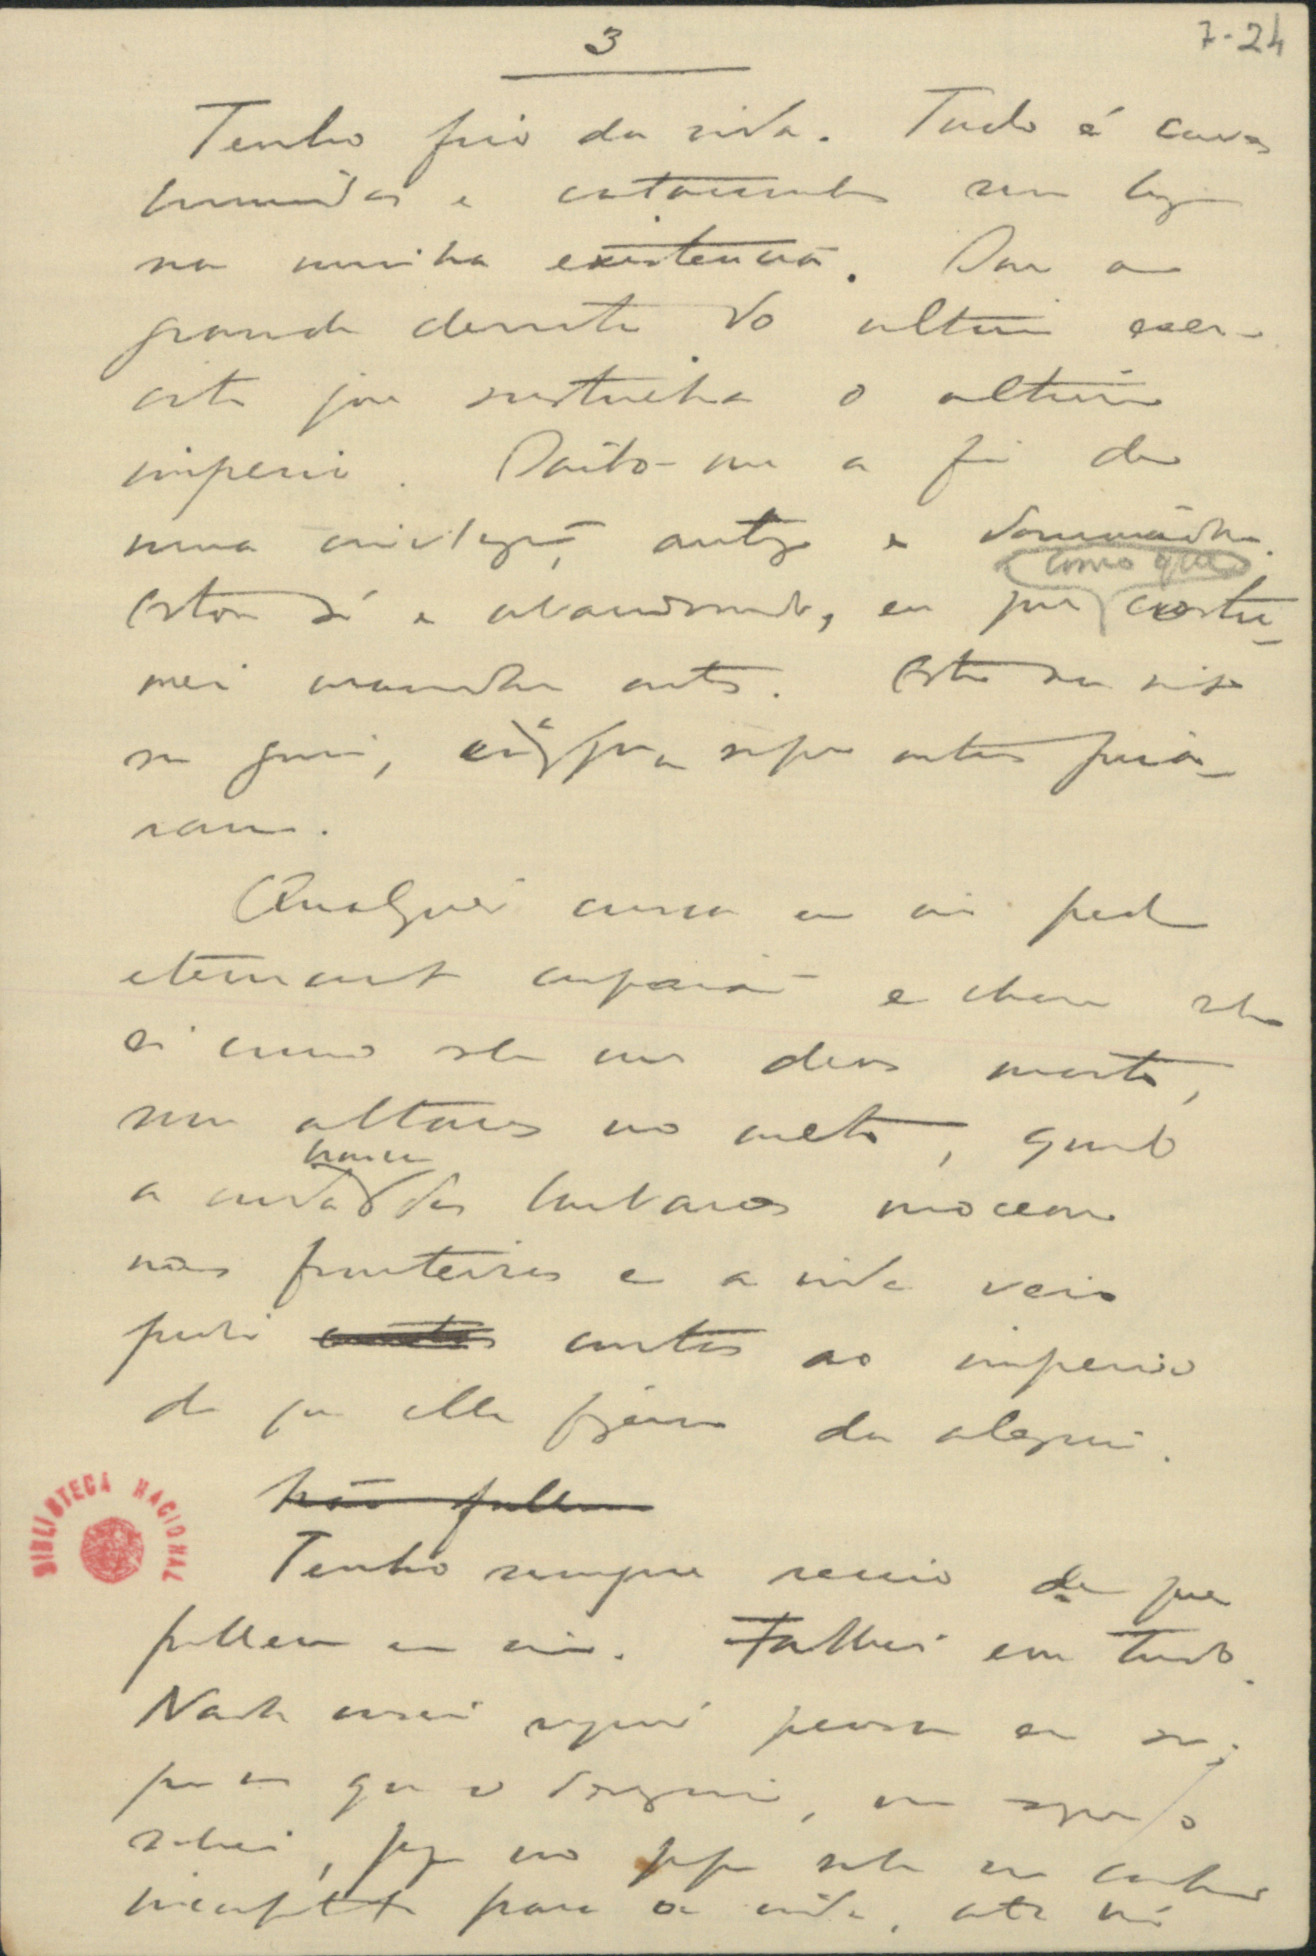 3
7-24
Tenho frio da vida. Tudo é caves
humidas e catacumbas sem luz
na minha existencia. Sou a
grande derrota do ultimo exer-
cito que sustinha o ultimo
imperio. Saibo-me a fim de
uma civilização antiga e dominadora.
como que
Estou só e abandonado, eu que costu-
mei mandar outros. Estou sem
sem guia, eu a quem sempre outros guia-
ram.
Qualquer cousa em mim pede
eternamente compaixão e chora sobre
si como sobre um deus morto,
sem altares no culto, quando
branca
a vinda dos barbaros moceou
nas fronteiras e a vida veio
pedir contas ao imperio
do que elle fizera da alegria.
Não fallem
Tenho sempre receio de que
fallem em mim. Falhei em tudo.
Nada ousei sequer pensar em ser;
pensar que o desejaria, nem sequer o
sonhei, porque no proprio sonho me conheci
para a vida, até no
BIBLIOTECA NACIONAL